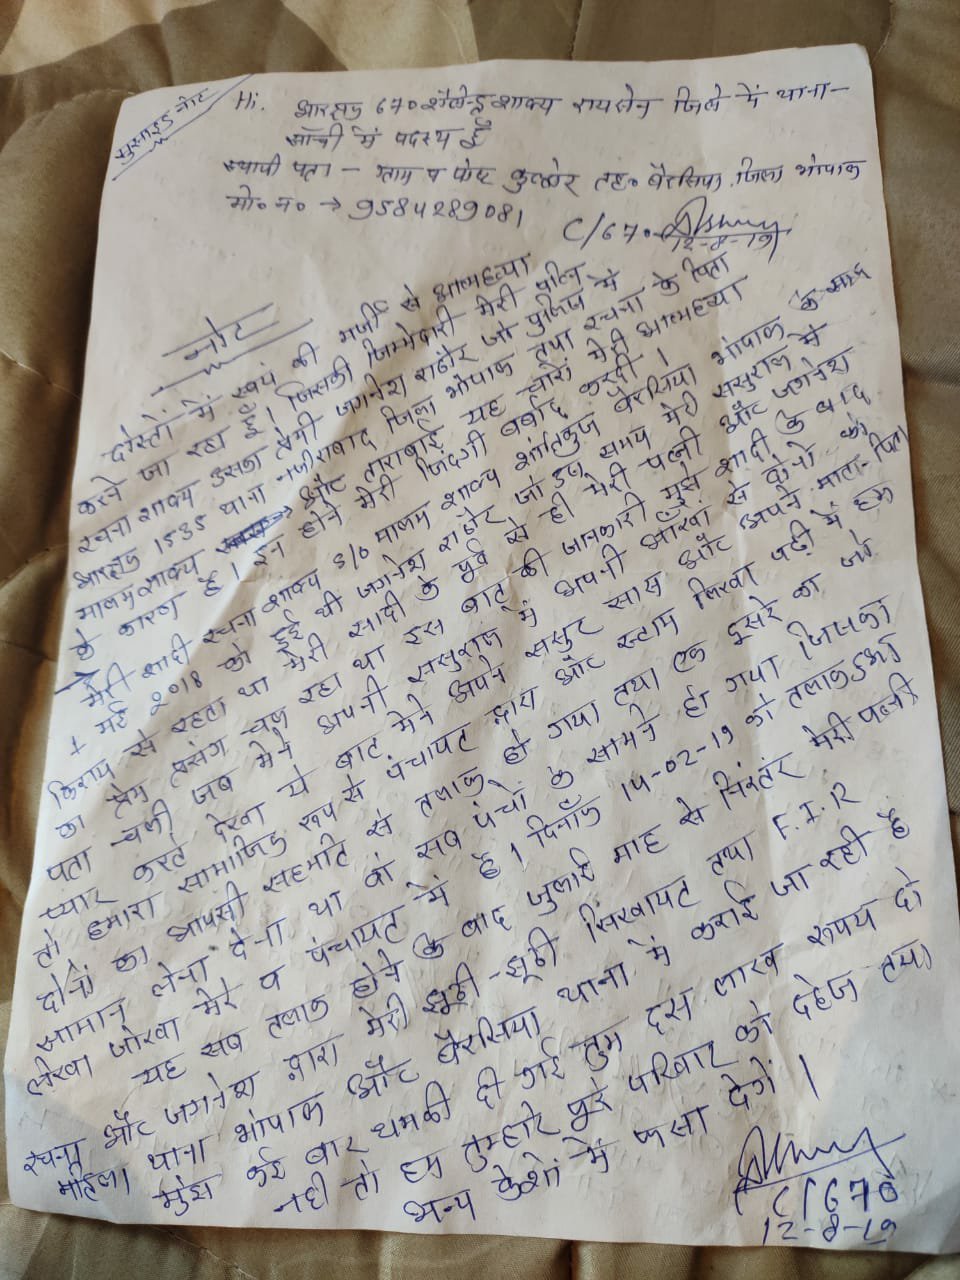 सुसाइड नोट
Hi. आरक्षक 670 शैलेन्द्र शाक्य रायसेन जिले में थाना-
साँची में पदस्थ हूँ
स्थायी पता - ग्राम व पोस्ट तह० बैरसिया. जिला भोपाल
मो० न० → 9584289081
C/670
12-8-19
नोट
दोस्तों में स्वयं की मर्जी से आत्महत्या
करने जा रहा हूँ। जिसकी जिम्मेदारी मेरी पत्नि
रचना शाक्य उसका प्रेमी जगनेश राठौर जो पुलिस में
आरक्षक 1535 थाना नजीराबाद जिला भोपाल तथा रचना के पिता
मालम शाक्य और ताराबाई यह चारों मेरी आत्महत्या
के कारण है। इन होने मेरी जिंदगी बर्बाद करदी।
मेरी शादी रचना शाक्य S/O मालम शाक्य शांतिकुंज बैरसिया भोपाल के साथ
मई 2018 को हुई थी जगनेश राठौर जो उस समय मेरी ससुराल में
किराय से रहता था मेरी सादी के पूर्व से ही मेरी पत्नी और जगनेश
का प्रेम प्रसंग चल रहा था इस बात की जानकारी मुझे शादी के बाद
पता चली जब मेने अपनी ससुराल में अपनी आँखों से दोनो को
प्यार करते देखा ये बात मेने अपने ससुर सास और अपने माता-पिता
तो हमारा सामाजिक रूप से पंचायट द्वारा और स्टाम लिखा पढ़ी में हम
दोनों का आपसी सहमति से तलाक हो गया तथा एक दूसरे का जो
सामान लेना देना था वो सब पंचों के सामने हो गया जिसका
लेखा जोखा मेरे व पंचायट में है। दिनाँक 14-02-19 को तलाक हुआ
यह सब तलाक होने के बाद जुलाई माह से निरंतर मेरी पत्नी
रचना और जगनेश द्वारा मेरी झूठी-झूठी सिखायट तथा F.I.R
महिला थाना भोपाल और बैरसिया थाना में कराई जा रही है
मुझे कई बार धमकी दी गई तुम दस लाख रूपय दो
नही तो हम तुम्हारे पुरे परिवार को देहेज तथा
अन्य केशों में फसा देगें।
C/670
12-8-19